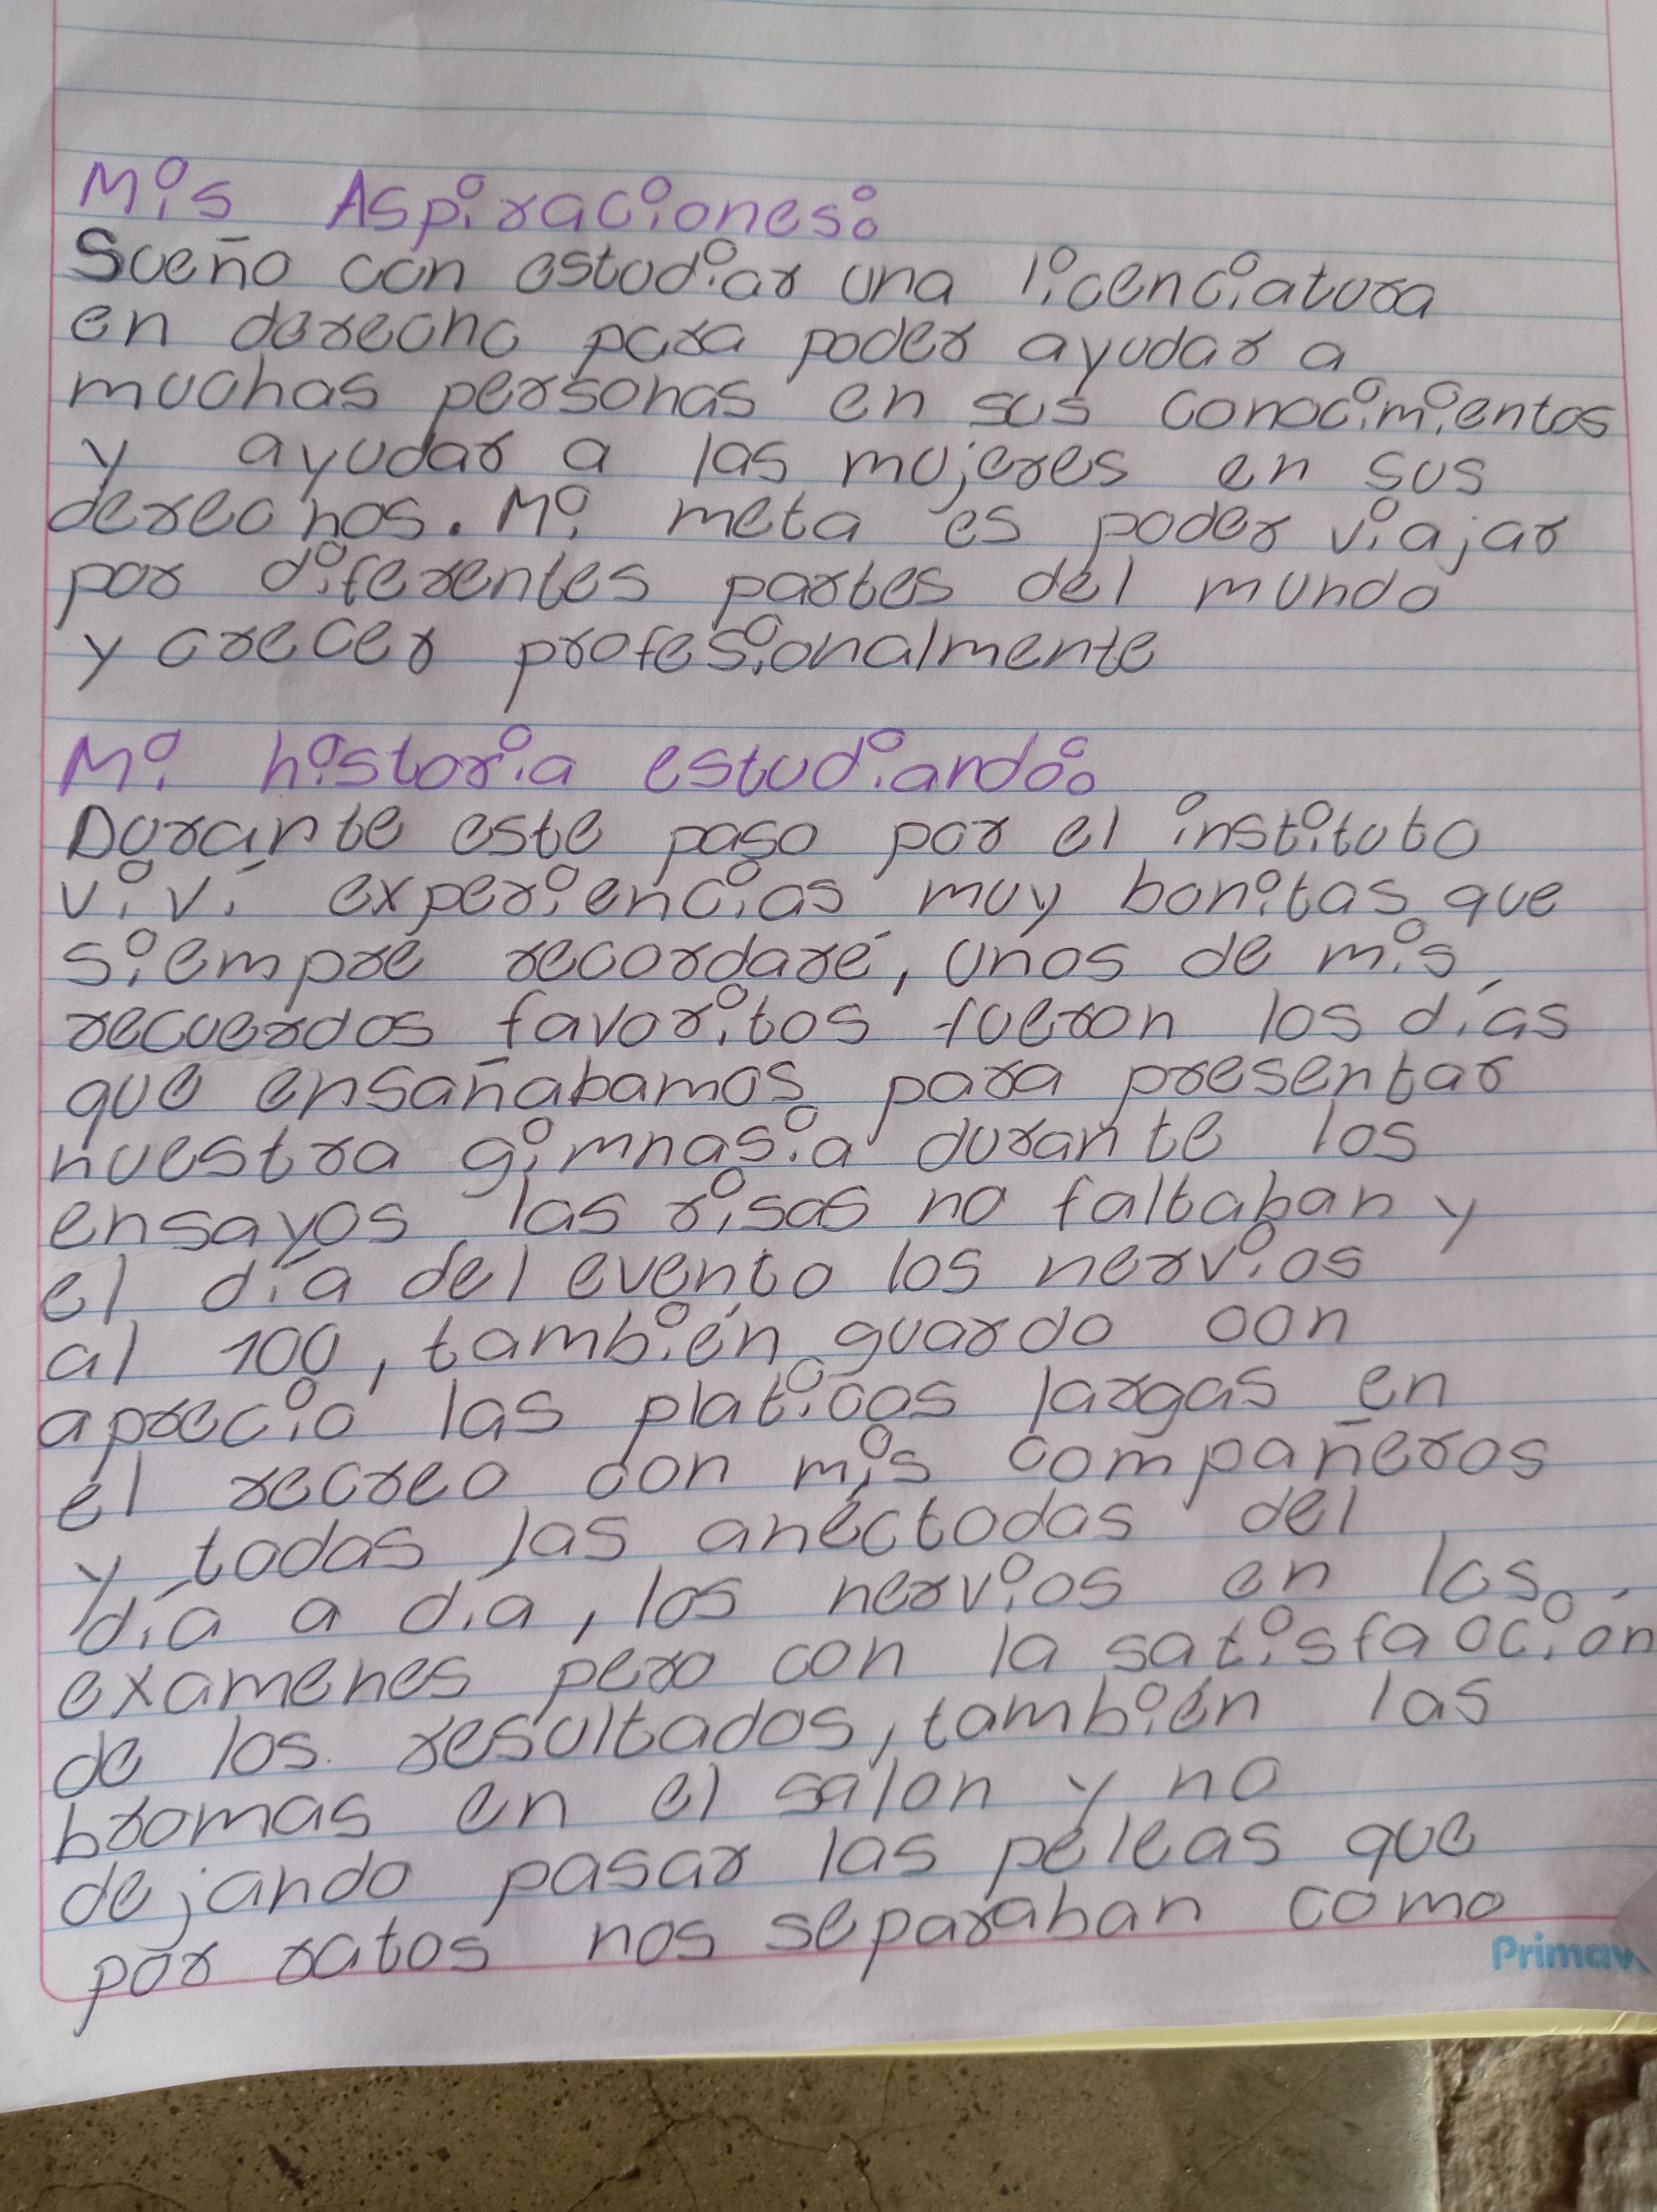 Mis Aspiraciones:
Sueño con estudiar una licenciatura
en derecho para poder ayudar a
muchas personas en sus conocimientos
y ayudar a las mujeres en sus
derechos. Mi meta es poder viajar
por diferentes partes del mundo
y crecer profesionalmente
Mi historia estudiando:
Durante este paso por el instituto
viví experiencias muy bonitas que
siempre recordaré, unos de mis
recuerdos favoritos fueron los días
que ensañabamos para presentar
nuestra gimnasia durante los
ensayos las risas no faltaban y
el día del evento los nervios
al 100, también guardo con
aprecio las platicas largas en
el recreo con mis compañeros
y todas las anéctodas del
día a día, los nervios en los
examenes pero con la satisfacción
de los resultados, también las
bromas en el salon y no
dejando pasar las peleas que
por ratos nos separaban como
Primav